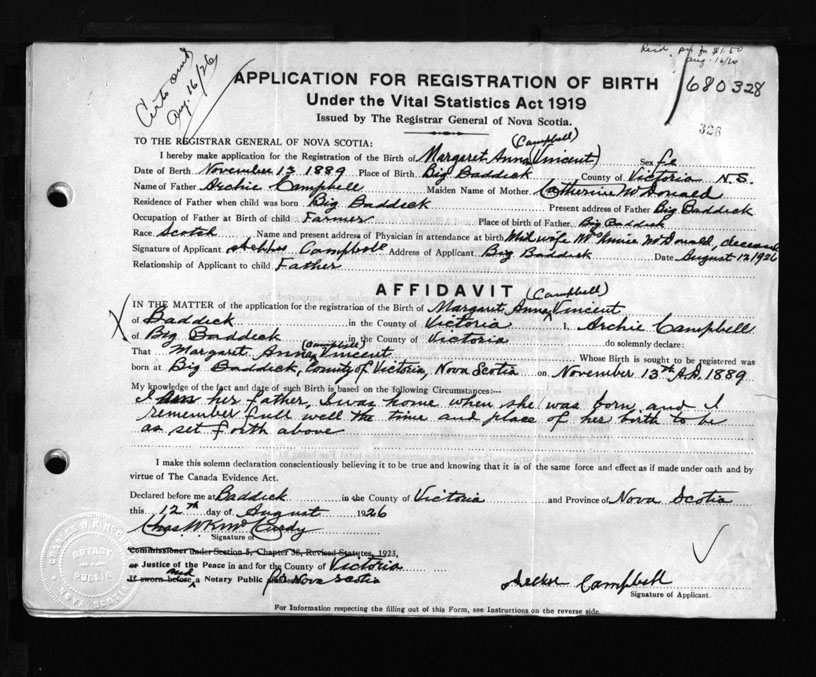 Certs and
Aug. 16/26
Aug. 16/26
APPLICATION FOR REGISTRATION OF BIRTH
680328
Under the Vital Statistics Act 1919
328
Issued by The Registrar General of Nova Scotia.
TO THE REGISTRAR GENERAL OF NOVA SCOTIA:
(Campbell)
I hereby make application for the Registration of the Birth of Margaret Anna (Vincent) Sex
Date of Birth November 13 1889 Place of Birth Big Baddeck County of Victoria N.S.
Name of Father Archie Campbell Maiden Name of Mother Catherine McDonald
Residence of Father when child was born Big Baddeck Present address of Father Big Baddeck
Occupation of Father at Birth of child Farmer Place of birth of Father Big Baddeck
Race Scotch Name and present address of Physician in attendance at birth Mid wife McDonald, deceased
Signature of Applicant Campbell Address of Applicant Big Baddeck Date August 12 1926
Relationship of Applicant to child Father
AFFIDAVIT (Campbell)
IN THE MATTER of the application for the registration of the Birth of Margaret Anna Vincent
of Baddeck in the County of Victoria I, Archie Campbell
of Big Baddeck in the County of Victoria do solemnly declare:
(Campbell)
That Margaret Anna Vincent Whose Birth is sought to be registered was
born at Big Baddeck, County of Victoria, Nova Scotia on November 13th A.D. 1889
My knowledge of the fact and date of such Birth is based on the following Circumstances:—
I am her father, I was home when she was born and I
remember full well the time and place of her birth to be
as set forth above
I make this solemn declaration conscientiously believing it to be true and knowing that it is of the same force and effect as if made under oath and by
virtue of The Canada Evidence Act.
Declared before me at Baddeck in the County of Victoria and Province of Nova Scotia
this 12th day of August 1926
Chas W K McCurdy
Signature of
Commissioner under Section 5, Chapter 38, Revised Statutes, 1923,
or Justice of the Peace in and for the County of Victoria
and
If sworn before a Notary Public for Nova Scotia
Campbell
Signature of Applicant.
For Information respecting the filling out of this Form, see Instructions on the reverse side.
NOTARY
PUBLIC
NOVA SCOTIA